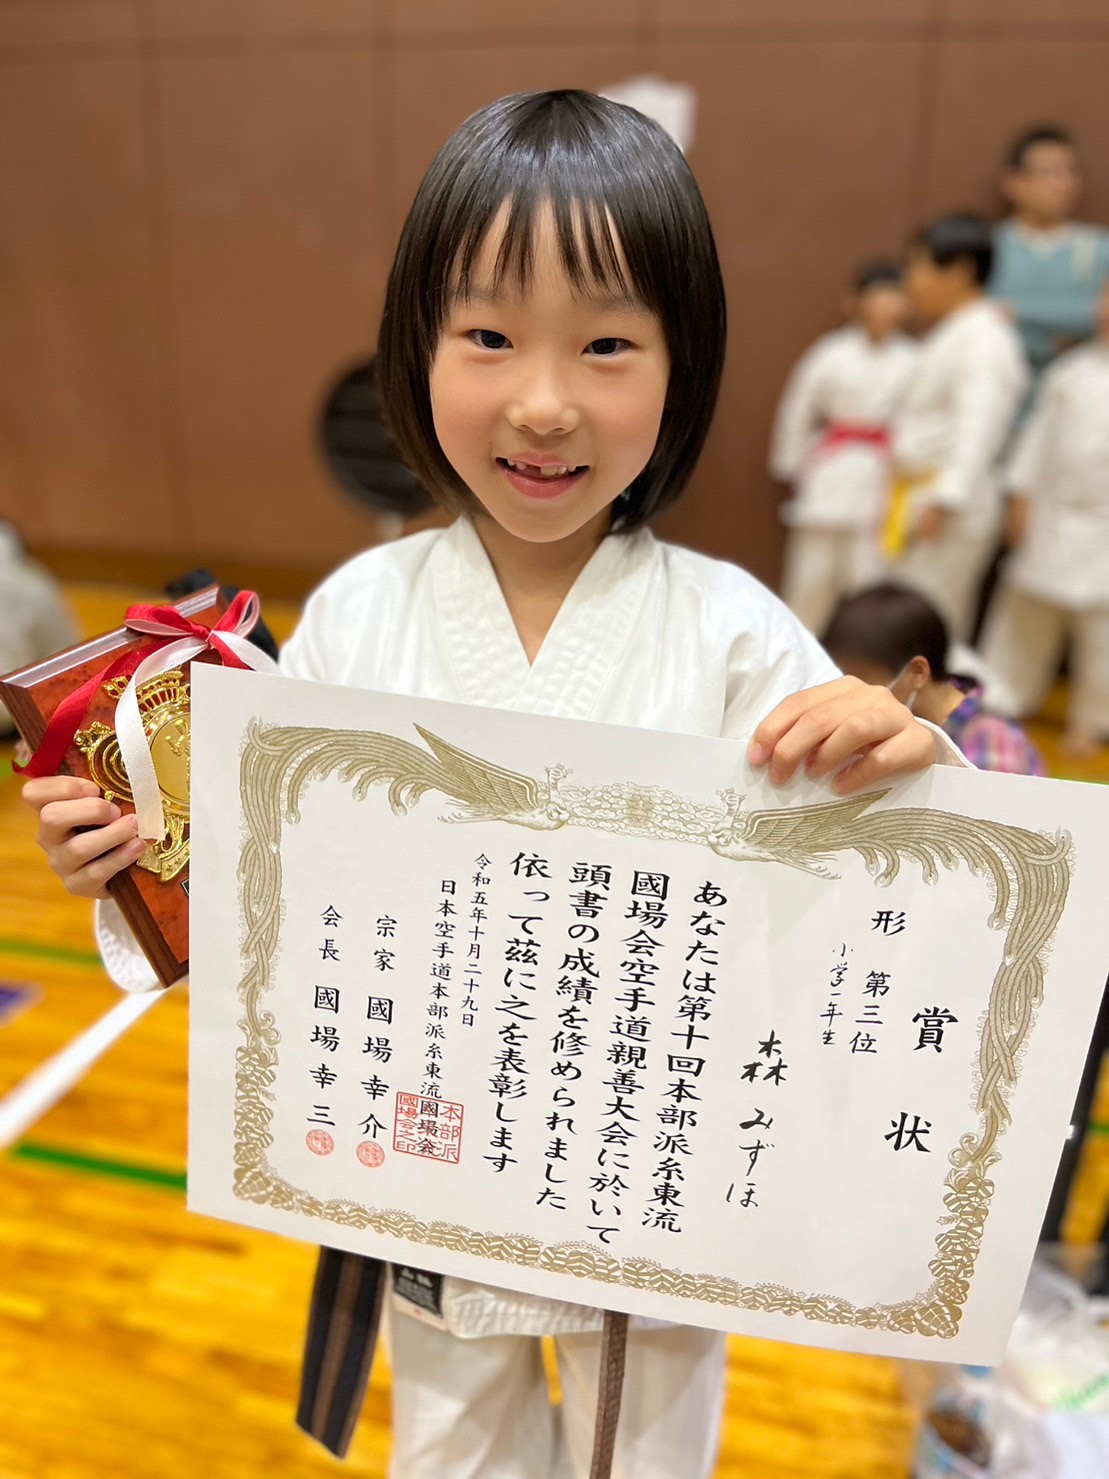 賞状
形 第三位
小学一年生
森 みずほ
あなたは第十回本部派糸東流
國場会空手道親善大会に於いて
頭書の成績を修められました
依って茲に之を表彰します
令和五年十月二十九日
日本空手道本部派糸東流國場会
宗家 國場幸介
会長 國場幸三
本部派
國場会之印